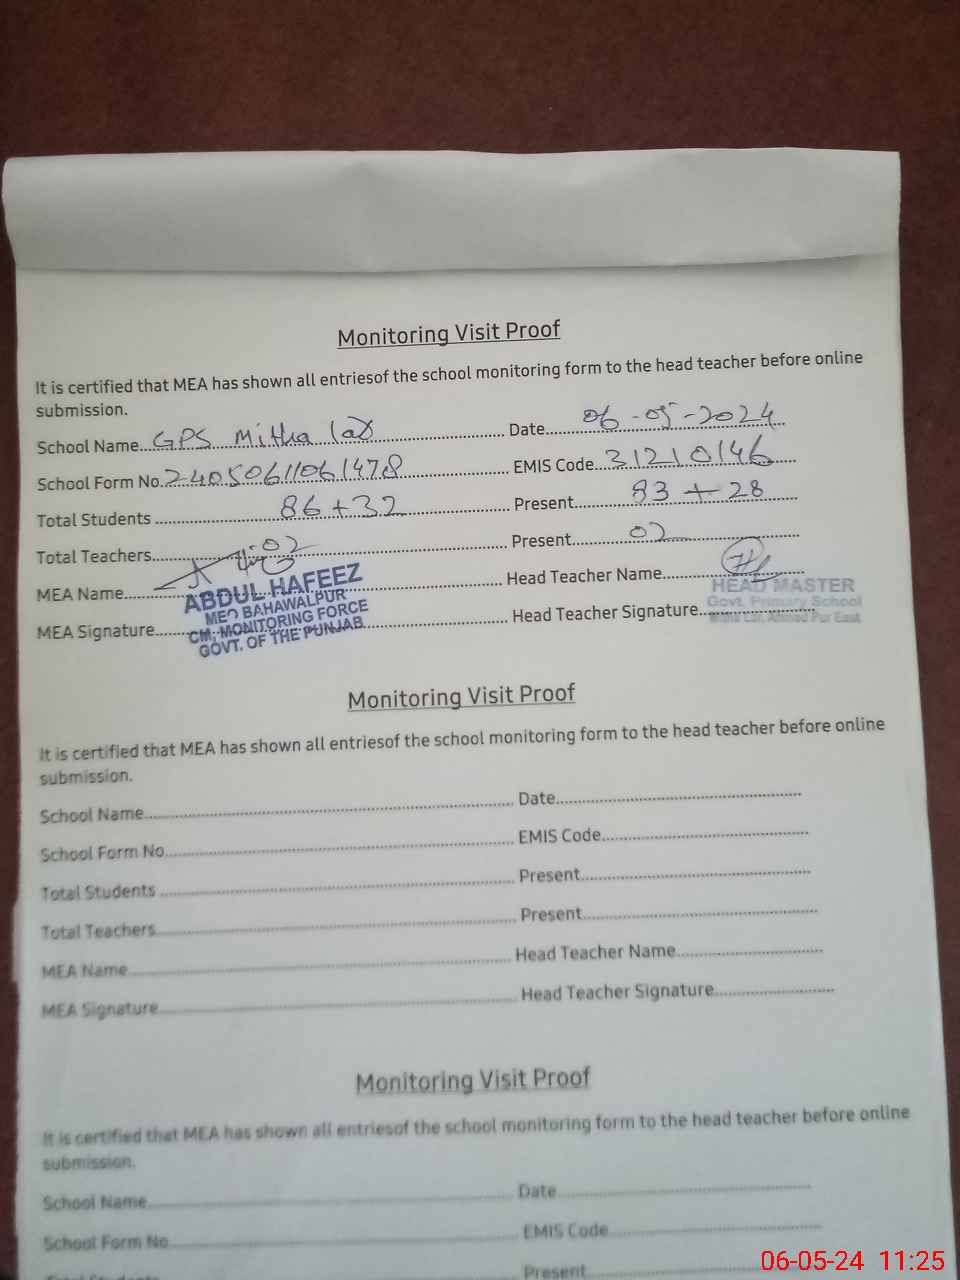 Monitoring Visit Proof
It is certified that MEA has shown all entriesof the school monitoring form to the head teacher before online
submission.
School Name GPS Mitha lar Date 06-05-2024
School Form No. 24050611061478 EMIS Code 31210146
Total Students 86+32 Present 83+28
Total Teachers 02 Present 02
MEA Name Head Teacher Name
ABDUL HAFEEZ
MEO BAHAWALPUR
CM, MONITORING FORCE
GOVT. OF THE PUNJAB
HEAD MASTER
Govt. Primary School
Mitha Lar, Ahmed Pur East
MEA Signature Head Teacher Signature
Monitoring Visit Proof
It is certified that MEA has shown all entriesof the school monitoring form to the head teacher before online
submission.
School Name Date
School Form No EMIS Code
Total Students Present
Total Teachers Present
MEA Name Head Teacher Name
MEA Signature Head Teacher Signature
Monitoring Visit Proof
It is certified that MEA has shown all entriesof the school monitoring form to the head teacher before online
submission.
School Name Date
School Form No EMIS Code
Total Students Present
06-05-24 11:25